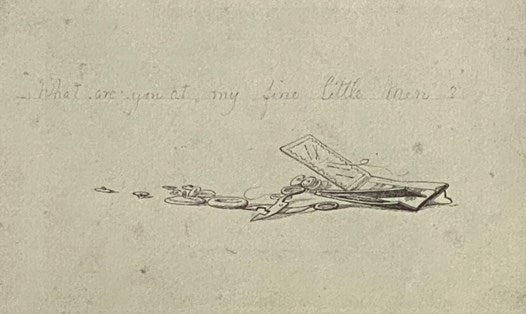 What are you at, my fine little men ?